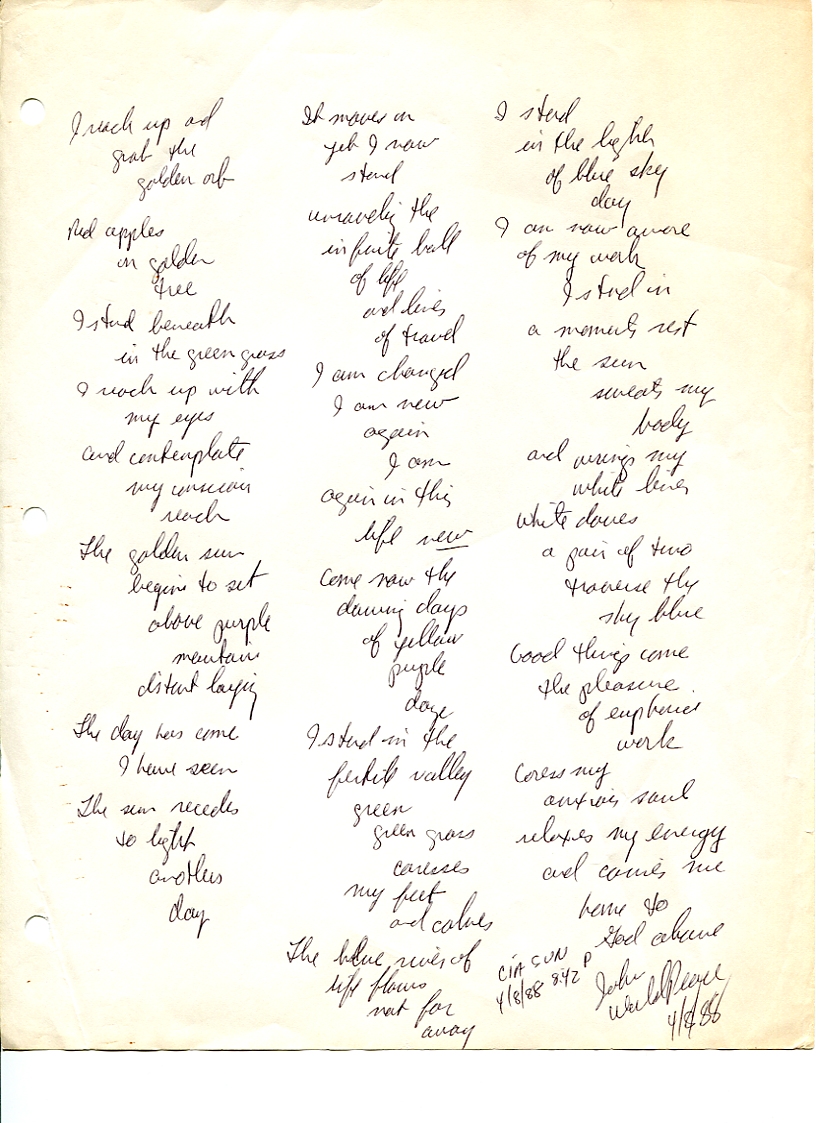 I reach up and
grab the
golden orb
Red apples
in golden
tree
I stand beneath
in the green grass
I reach up with
my eyes
and contemplate
my conscious
reach
The golden sun
begins to set
above purple
mountain
distant laying
The day has come
I have seen
The sun recedes
to light
another
day
It moves on
yet I now
stand
unraveling the
infinite ball
of life
and lives
of travel
I am changed
I am new
again
I am
again in this
life new
Come now the
dawning days
of yellow
purple
daze
I stand in the
fertile valley
green
green grass
caresses
my feet
and calves
The blue river of
life flows
not far
away
I stand
in the light
of blue sky
day
I am now aware
of my work
I stand in
a moments rest
the sun
sweats my
body
and wrings my
white lives
White doves
a pair of two
traverse the
sky blue
Good things come
the pleasure
of euphoric
work
Caress my
anxious soul
relaxes my energy
and carries me
home to
God above
CIA SUN
4/8/88 8:42 P
John
WorldPeace
4/8/88